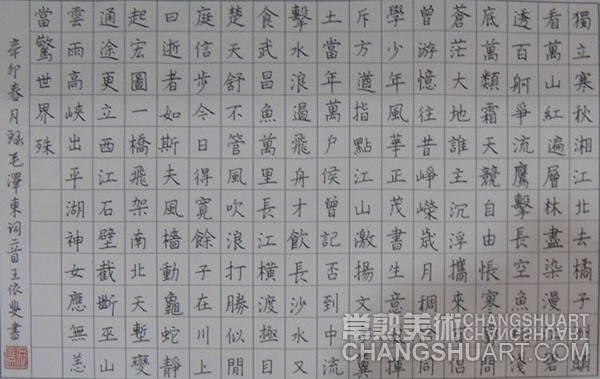 獨立寒秋湘江北去橘子頭
看萬山紅遍層林盡染漫
透百舸爭流鷹擊長空魚淺
底萬類霜天競自由悵寥間
蒼茫大地誰主沉浮攜來
曾游憶往昔崢嶸歲月稠同
學少年風華正茂書生意揮
斥方遒指點江山激揚文
土當年萬戶侯曾記否到中流
擊水浪遏飛舟才飲長沙水又
食武昌魚萬里長江橫渡極目
楚天舒不管風吹浪打勝似閒
庭信步今日得寬餘子在川上
曰逝者如斯夫風檣動龜蛇靜
起宏圖一橋飛架南北天塹變
通途更立西江石壁截斷巫山
雲雨高峽出平湖神女應無恙
當驚世界殊
辛卯春月錄毛澤東詞二首王依斐書
常熟美術
CHANGSHUART.COM